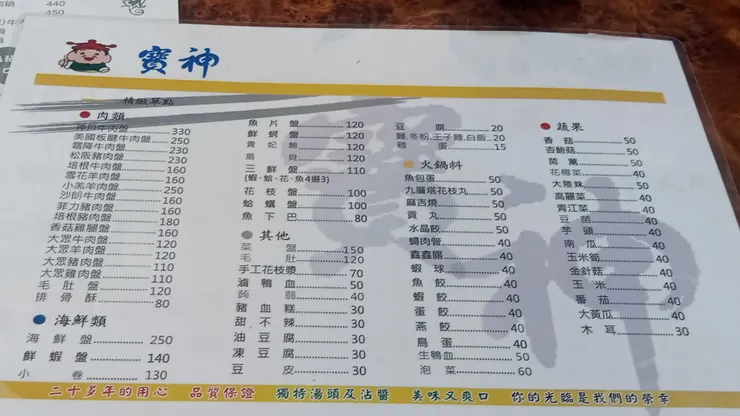 440
450
寶神
精緻單點
肉類
神戶牛肉盤 330
美國板腱牛肉盤 250
霜降牛肉盤 230
松阪豬肉盤 230
培根牛肉盤 160
雪花羊肉盤 160
小羔羊肉盤 250
沙朗牛肉盤 160
菲力豬肉盤 160
培根豬肉盤 160
香菇雞腿盤 180
大眾牛肉盤 120
大眾羊肉盤 120
大眾豬肉盤 110
大眾雞肉盤 110
毛肚盤 120
排骨酥 80
海鮮類
海鮮盤 250
鮮蝦盤 140
小卷 130
魚片盤 120
鮮蚵盤 120
貴妃鮑 120
扇貝 120
三鮮盤 110
(蝦·蛤·花·魚4選3)
花枝盤 100
蛤蠣盤 100
魚下巴 80
其他
菜盤 150
毛肚 120
手工花枝漿 70
滷鴨血 50
蒟蒻 40
豬血糕 30
甜不辣 30
油豆腐 30
凍豆腐 30
豆皮 30
豆腐 20
麵,冬粉,王子麵,白飯 20
雞蛋 15
火鍋料
魚包蛋 50
九層塔花枝丸 50
麻吉燒 50
貢丸 50
水晶餃 50
蟳肉管 40
鑫鑫腸 40
蝦球 40
魚餃 40
蝦餃 40
蛋餃 40
燕餃 40
鳥蛋 40
生鴨血 50
泡菜 60
蔬果
香菇 50
杏鮑菇 50
茼蒿 50
花椰菜 40
大陸妹 50
高麗菜 40
青江菜 40
豆苗 40
芋頭 40
南瓜 40
玉米筍 40
金針菇 40
玉米 40
番茄 40
大黃瓜 40
木耳 30
二十多年的用心 品質保證 獨特湯頭及沾醬 美味又爽口 你的光臨是我們的榮幸